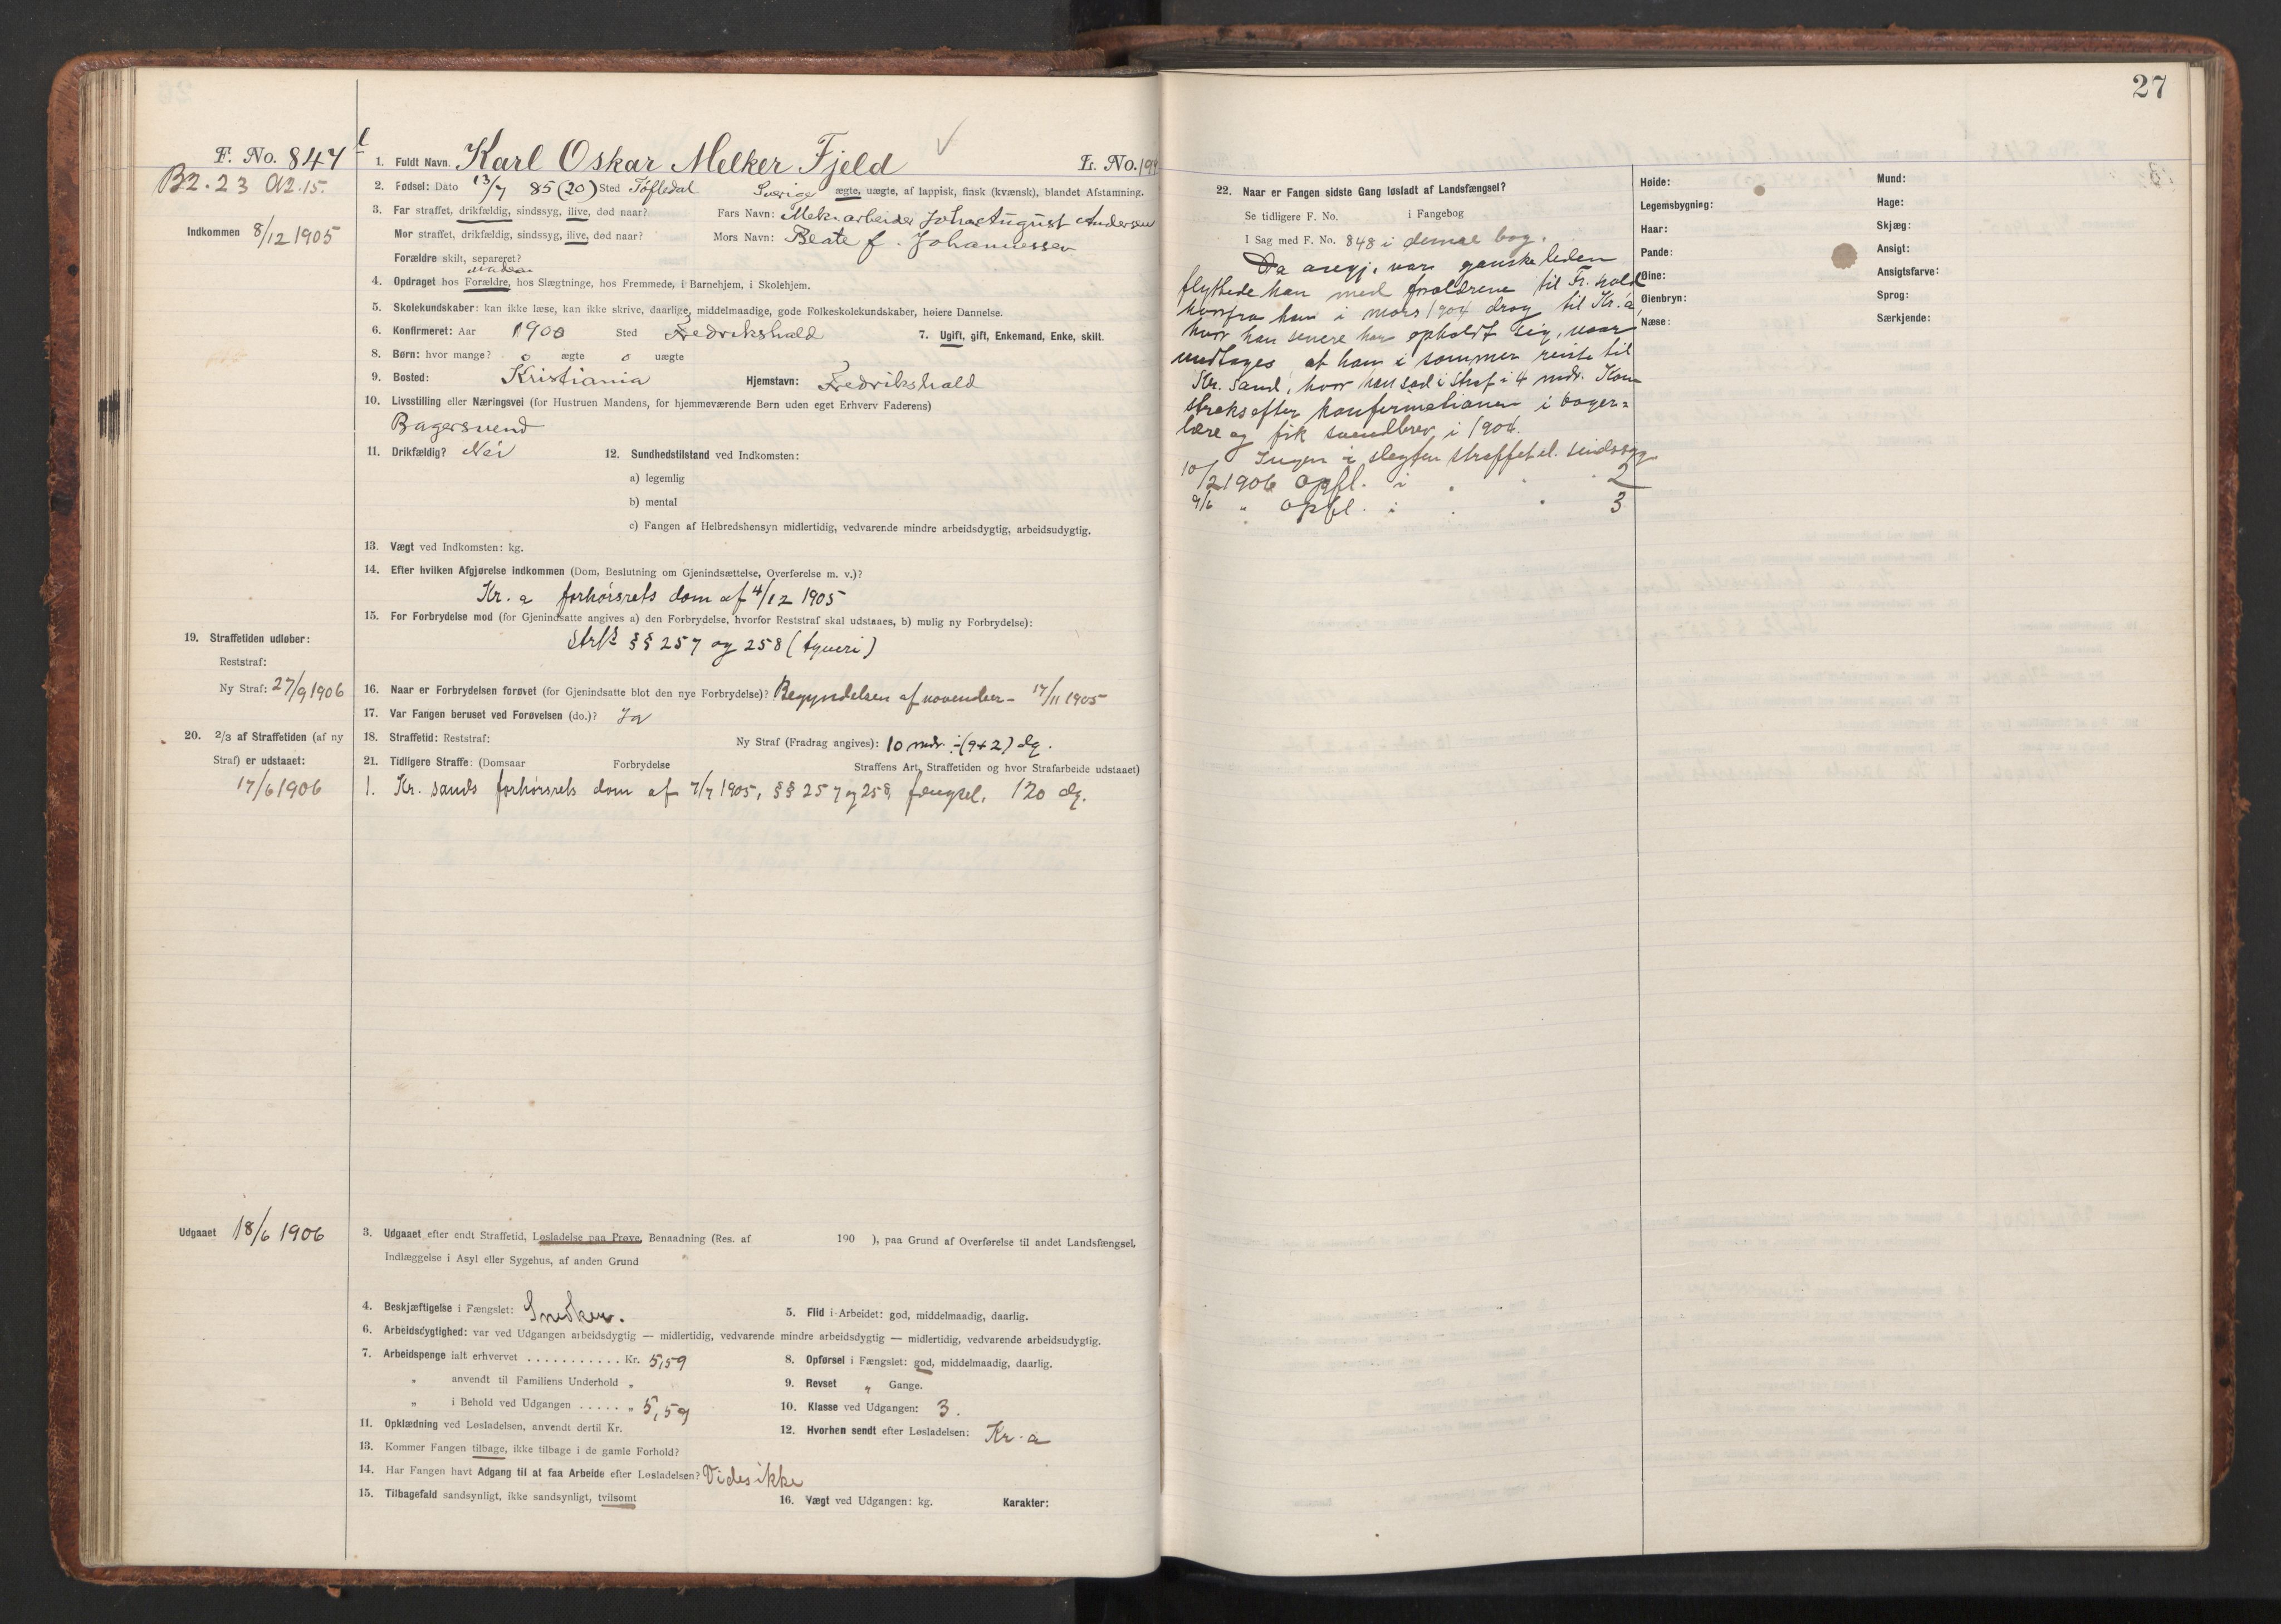 27
F. No. 847
B2. 23 A2. 15.
Indkommen 8/12 1905
1. Fuldt Navn. Karl Oskar Melker Fjeld L. No.
2. Fødsel: Dato 13/7 85 (20) Sted Töftedal Sverige ægte, uægte, af lappisk, finsk (kvænsk), blandet Afstamning.
3. Far straffet, drikfældig, sindssyg, ilive, død naar? Fars Navn: Mek. arbeider Johan August Andersen
Mor straffet, drikfældig, sindssyg, ilive, død naar? Mors Navn: Beate f. Johannessen
Forældre skilt, separeret?
4. Opdraget hos Forældre, hos Slægtninge, hos Fremmede, i Barnehjem, i Skolehjem.
5. Skolekundskaber: kan ikke læse, kan ikke skrive, daarlige, middelmaadige, gode Folkeskolekundskaber, høiere Dannelse.
6. Konfirmeret: Aar 1900 Sted Fredrikshald 7. Ugift, gift, Enkemand, Enke, skilt.
8. Børn: hvor mange? 0 ægte 0 uægte
9. Bosted: Kristiania Hjemstavn: Fredrikshald
10. Livsstilling eller Næringsvei (for Hustruen Mandens, for hjemmeværende Børn uden eget Erhverv Faderens)
Bagersvend
11. Drikfældig? Nei 12. Sundhedstilstand ved Indkomsten:
a) legemlig
b) mental
c) Fangen af Helbredshensyn midlertidig, vedvarende mindre arbeidsdygtig, arbeidsudygtig.
13. Vægt ved Indkomsten: kg.
14. Efter hvilken Afgjørelse indkommen (Dom, Beslutning om Gjenindsættelse, Overførelse m. v.)?
Kr. a forhörsrets dom af 4/12 1905
15. For Forbrydelse mod (for Gjenindsatte angives a) den Forbrydelse, hvorfor Reststraf skal udstaaes, b) mulig ny Forbrydelse):
Strfl §§ 257 og 258 (tyveri)
19. Straffetiden udløber:
Reststraf:
Ny Straf: 27/9 1906
16. Naar er Forbrydelsen forøvet (for Gjenindsatte blot den nye Forbrydelse)? Begyndelsen af november - 17/11 1905
17. Var Fangen beruset ved Forøvelsen (do.)? Ja
20. 2/3 af Straffetiden (af ny
Straf) er udstaaet:
17/6 1906
18. Straffetid: Reststraf: Ny Straf (Fradrag angives): 10 mdr. ÷ (9+2) dg.
21. Tidligere Straffe: (Domsaar Forbrydelse Straffens Art, Straffetiden og hvor Strafarbeide udstaaet)
1. Kr. sands forhørsrets dom af 7/7 1905, §§ 257 og 258, fængsel, 120 dg.
Udgaaet 18/6 1906
3. Udgaaet efter endt Straffetid, Løsladelse paa Prøve, Benaadning (Res. af 190 ), paa Grund af Overførelse til andet Landsfængsel,
Indlæggelse i Asyl eller Sygehus, af anden Grund
4. Beskjæftigelse i Fængslet: Snedker. 5. Flid i Arbeidet: god, middelmaadig, daarlig.
6. Arbeidsdygtighed: var ved Udgangen arbeidsdygtig — midlertidig, vedvarende mindre arbeidsdygtig — midlertidig, vedvarende arbeidsudygtig.
7. Arbeidspenge ialt erhvervet ........... Kr. 5,59 8. Opførsel i Fængslet: god, middelmaadig, daarlig.
" anvendt til Familiens Underhold " 9. Revset " Gange.
" i Behold ved Udgangen ..... " 5,59 10. Klasse ved Udgangen: 3.
11. Opklædning ved Løsladelsen, anvendt dertil Kr. 12. Hvorhen sendt efter Løsladelsen: Kr. a
13. Kommer Fangen tilbage, ikke tilbage i de gamle Forhold?
14. Har Fangen havt Adgang til at faa Arbeide efter Løsladelsen? Vides ikke
15. Tilbagefald sandsynligt, ikke sandsynligt, tvilsomt 16. Vægt ved Udgangen: kg. Karakter:
22. Naar er Fangen sidste Gang løsladt af Landsfængsel?
Se tidligere F. No. i Fangebog
I Sag med F. No. 848 i denne bog.
Da var ganske liden
flyttede han med forældrene til Fr. hald
hvorfra han i mars 1904 drog til Kr. a,
hvor han senere har opholdt sig, naar
undtages at han i sommer reiste til
Kr. sand, hvor han sad i straf i 4 mdr. Kom
straks efter konfirmationen i bager=
lære og fik svendbrev i 1904.
Ingen i slegten straffet el. sindssyg
10/2 1906 Opfl. i " " 2
9/6 " Opfl. i " " 3
Høide:
Legemsbygning:
Haar:
Pande:
Øine:
Øienbryn:
Næse:
Mund:
Hage:
Skjæg:
Ansigt:
Ansigtsfarve:
Sprog:
Særkjende: